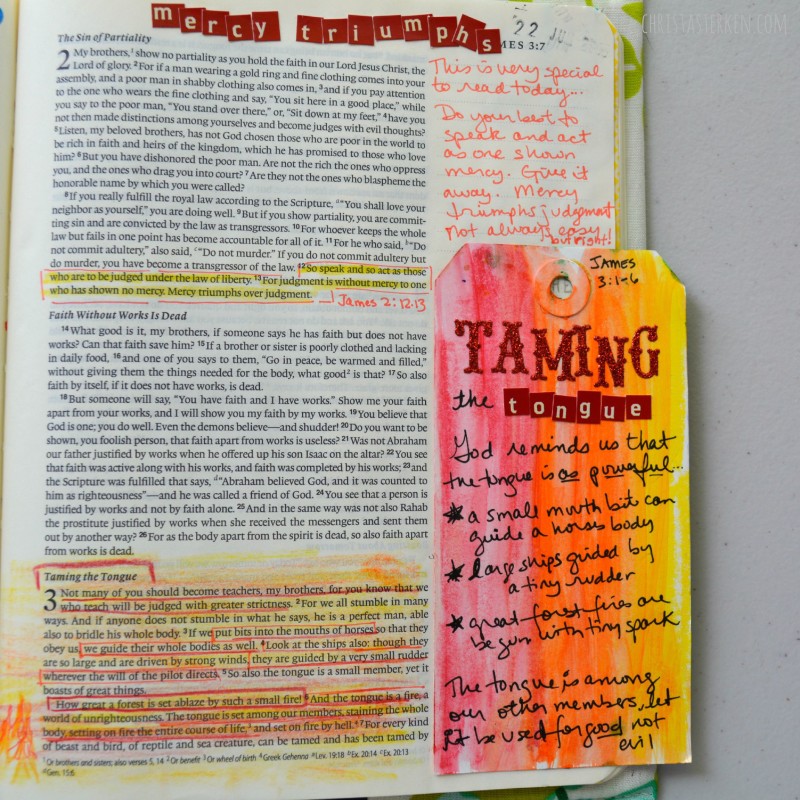 CHRISTASTERKEN.COM
mercy triumphs
22 JU
MES 3:7
The Sin of Partiality
2 My brothers, ¹show no partiality as you hold the faith in our Lord Jesus Christ, the
Lord of glory. ²For if a man wearing a gold ring and fine clothing comes into your
assembly, and a poor man in shabby clothing also comes in, ³and if you pay attention
to the one who wears the fine clothing and say, “You sit here in a good place,” while
you say to the poor man, “You stand over there,” or, “Sit down at my feet,” ⁴have you
not then made distinctions among yourselves and become judges with evil thoughts?
⁵Listen, my beloved brothers, has not God chosen those who are poor in the world to
be rich in faith and heirs of the kingdom, which he has promised to those who love
him? ⁶But you have dishonored the poor man. Are not the rich the ones who oppress
you, and the ones who drag you into court? ⁷Are they not the ones who blaspheme the
honorable name by which you were called?
⁸If you really fulfill the royal law according to the Scripture, “You shall love your
neighbor as yourself,” you are doing well. ⁹But if you show partiality, you are commit-
ting sin and are convicted by the law as transgressors. ¹⁰For whoever keeps the whole
law but fails in one point has become accountable for all of it. ¹¹For he who said, “Do
not commit adultery,” also said, “Do not murder.” If you do not commit adultery but
do murder, you have become a transgressor of the law. ¹²So speak and so act as those
who are to be judged under the law of liberty. ¹³For judgment is without mercy to one
who has shown no mercy. Mercy triumphs over judgment.
James 2:12.13
Faith Without Works Is Dead
¹⁴What good is it, my brothers, if someone says he has faith but does not have
works? Can that faith save him? ¹⁵If a brother or sister is poorly clothed and lacking
in daily food, ¹⁶and one of you says to them, “Go in peace, be warmed and filled,”
without giving them the things needed for the body, what good² is that? ¹⁷So also
faith by itself, if it does not have works, is dead.
¹⁸But someone will say, “You have faith and I have works.” Show me your faith
apart from your works, and I will show you my faith by my works. ¹⁹You believe that
God is one; you do well. Even the demons believe—and shudder! ²⁰Do you want to be
shown, you foolish person, that faith apart from works is useless? ²¹Was not Abraham
our father justified by works when he offered up his son Isaac on the altar? ²²You see
that faith was active along with his works, and faith was completed by his works; ²³and
the Scripture was fulfilled that says, “Abraham believed God, and it was counted to
him as righteousness”—and he was called a friend of God. ²⁴You see that a person is
justified by works and not by faith alone. ²⁵And in the same way was not also Rahab
the prostitute justified by works when she received the messengers and sent them
out by another way? ²⁶For as the body apart from the spirit is dead, so also faith apart
from works is dead.
Taming the Tongue
3 Not many of you should become teachers, my brothers, for you know that we
who teach will be judged with greater strictness. ²For we all stumble in many
ways. And if anyone does not stumble in what he says, he is a perfect man, able
also to bridle his whole body. ³If we put bits into the mouths of horses so that they
obey us, we guide their whole bodies as well. ⁴Look at the ships also: though they
are so large and are driven by strong winds, they are guided by a very small rudder
wherever the will of the pilot directs. ⁵So also the tongue is a small member, yet it
boasts of great things.
How great a forest is set ablaze by such a small fire! ⁶And the tongue is a fire, a
world of unrighteousness. The tongue is set among our members, staining the whole
body, setting on fire the entire course of life,³ and set on fire by hell.⁴ ⁷For every kind
of beast and bird, of reptile and sea creature, can be tamed and has been tamed by
¹Or brothers and sisters; also verses 5, 14 ²Or benefit ³Or wheel of birth ⁴Greek Gehenna Lev. 19:18 Ex. 20:14 Ex. 20:13
Gen. 15:6
This is very special
to read today...
Do your best to
speak and act
as one shown
mercy. Give it
away. Mercy
triumphs judgement
not always easy
but right!
JAMES
3:1-6
TAMING
the tongue
God reminds us that
the tongue is as powerful...
* a small mouth bit can
guide a horses body
* large ships guided by
a tiny rudder
* great forest fires are
begun with tiny spark
The tongue is among
our other members, let
it be used for good not
evil